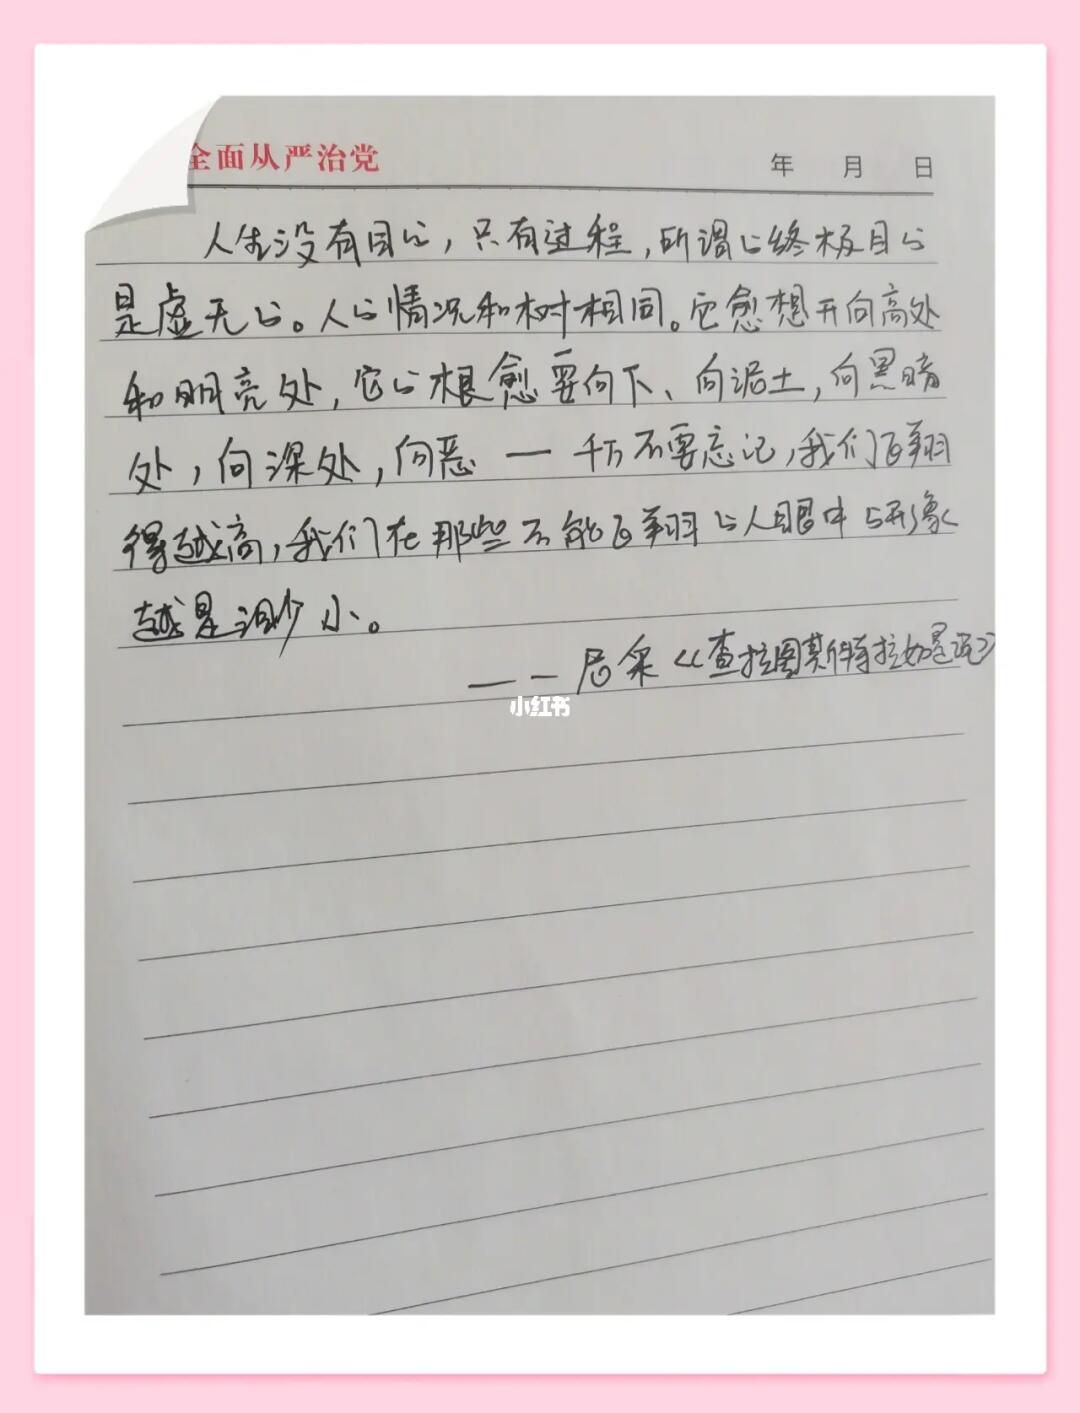 全面从严治党
年 月 日
人生没有目的，只有过程，所谓的终极目的
是虚无的。人的情况和树相同。它愈想开向高处
和明亮处，它的根愈要向下、向泥土，向黑暗
处，向深处，向恶一千万不要忘记，我们飞翔
得越高，我们在那些不能飞翔的人眼中的形象
越是渺小。
——尼采《查拉图斯特拉如是说》
小红书